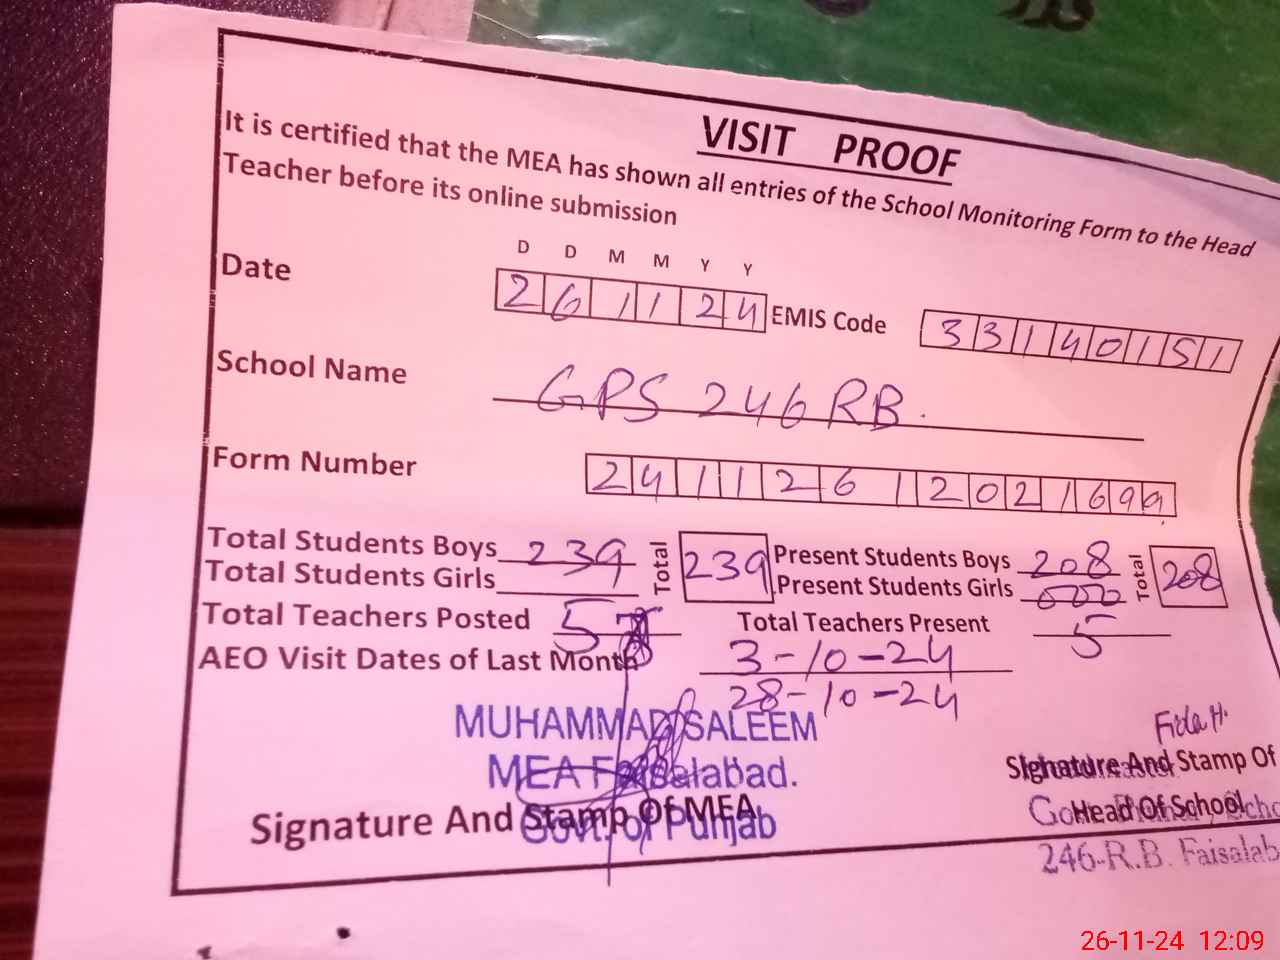 VISIT PROOF
It is certified that the MEA has shown all entries of the School Monitoring Form to the Head
Teacher before its online submission
D D M M Y Y
Date 2 6 1 1 2 4 EMIS Code 3 3 1 4 0 1 5 1
School Name GPS 246 RB.
Form Number 2 4 1 1 2 6 1 2 0 2 1 6 9 9
Total Students Boys 239 Total 239 Present Students Boys 208 Total 208
Total Students Girls Present Students Girls 000
Total Teachers Posted 5 Total Teachers Present 5
AEO Visit Dates of Last Month 3-10-24
28-10-24
MUHAMMAD SALEEM
MEA Faisalabad.
Govt. of Punjab
Signature And Stamp Of MEA
Fida H.
Signature And Stamp Of
Head Of School
246-R.B. Faisalab
26-11-24 12:09